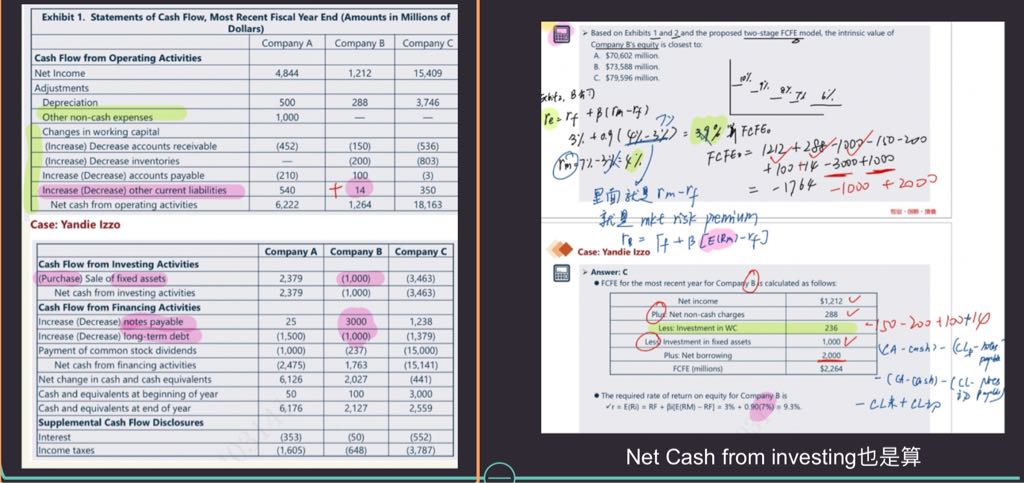 Exhibit 1. Statements of Cash Flow, Most Recent Fiscal Year End (Amounts in Millions of
Dollars)
Company A Company B Company C
Cash Flow from Operating Activities
Net Income 4,844 1,212 15,409
Adjustments
Depreciation 500 288 3,746
Other non-cash expenses 1,000 — —
Changes in working capital
(Increase) Decrease accounts receivable (452) (150) (536)
(Increase) Decrease inventories — (200) (803)
Increase (Decrease) accounts payable (210) 100 (3)
Increase (Decrease) other current liabilities 540 + 14 350
Net cash from operating activities 6,222 1,264 18,163
Case: Yandie Izzo
Company A Company B Company C
Cash Flow from Investing Activities
(Purchase) Sale of fixed assets 2,379 (1,000) (3,463)
Net cash from investing activities 2,379 (1,000) (3,463)
Cash Flow from Financing Activities
Increase (Decrease) notes payable 25 3000 1,238
Increase (Decrease) long-term debt (1,500) (1,000) (1,379)
Payment of common stock dividends (1,000) (237) (15,000)
Net cash from financing activities (2,475) 1,763 (15,141)
Net change in cash and cash equivalents 6,126 2,027 (441)
Cash and equivalents at beginning of year 50 100 3,000
Cash and equivalents at end of year 6,176 2,127 2,559
Supplemental Cash Flow Disclosures
Interest (353) (50) (552)
Income taxes (1,605) (648) (3,787)
Based on Exhibits 1 and 2 and the proposed two-stage FCFE model, the intrinsic value of
Company B's equity is closest to:
A. $70,602 million.
B. $73,588 million.
C. $79,596 million.
10% 9% 8% 7% 6%
re = rf + β(rm-rf)
3% + 0.9(4%-3%) = 3.9%
rm = 7%-3% = 4%
FCFE0
FCFE0 = 1212 + 288 - 1000 - 150 - 200
+ 100 + 14 - 3000 + 1000
= -1764 - 1000 + 2000
里面就是 rm-rf
就是 mkt risk premium
re = rf + β[E(Rm)-rf]
Case: Yandie Izzo
Answer: C
FCFE for the most recent year for Company B is calculated as follows:
Net income $1,212
Plus: Net non-cash charges 288
Less: Investment in WC 236
Less: Investment in fixed assets 1,000
Plus: Net borrowing 2,000
FCFE (millions) $2,264
-150-200+100+14
The required rate of return on equity for Company B is
r = E(Ri) = RF + βi[E(RM) – RF] = 3% + 0.90(7%) = 9.3%.
Net Cash from investing也是算